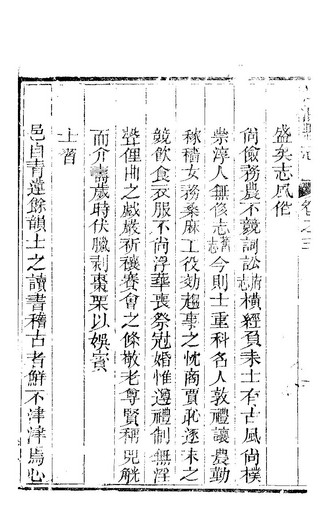 卷之三
盛矣志風俗
尙儉務農不競詞訟府志橫經負耒士有古風尙樸
崇淳人無侈志舊志今則士重科名人敦禮讓農勤
稼穡女務桑麻工役効趨事之忱商賈恥逐末之
競飲食衣服不尙浮華喪祭冠婚惟遵禮制無淫
聲俚曲之戲嚴祈禳賽會之條敬老尊賢稱兕觥
而介壽歲時伏臘剥棗栗以娛賓
士習
邑自青蓮餘韻士之讀書稽古者鮮不津津焉心